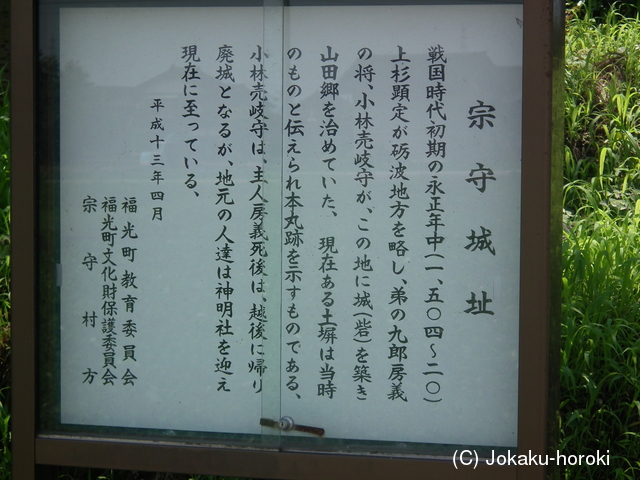 宗守城址
戦国時代初期の永正年中(一、五〇四～二〇)
上杉顕定が砺波地方を略し、弟の九郎房義
の将、小林壱岐守が、この地に城(砦)を築き
山田郷を治めていた、現在ある土塀は当時
のものと伝えられ本丸跡を示すものである、
小林壱岐守は、主人房義死後は、越後に帰り
廃城となるが、地元の人達は神明社を迎え
現在に至っている、
平成十三年四月
福光町教育委員会
福光町文化財保護委員会
宗守村方
(C) Jokaku-horoki